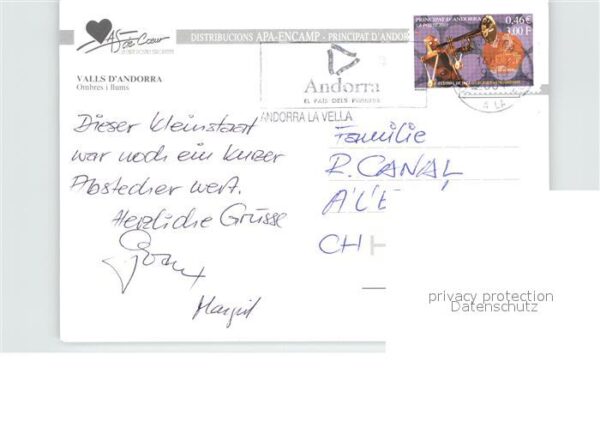 As de Cœur
DISTRIBUCIONS APA-ENCAMP - PRINCIPAT D'ANDOR
VALLS D'ANDORRA
Ombres i llums
PRINCIPAT D'ANDORRA
LA POSTE 2001
0,46 €
3,00 F
Andorra
EL PAÍS DELS PIRINEUS
ANDORRA LA VELLA
Dieser Kleinstaat
war noch ein kurzer
Abstecher wert.
Herzliche Grüsse
Margrit
Familie
R. CANAL
CH
privacy protection
Datenschutz